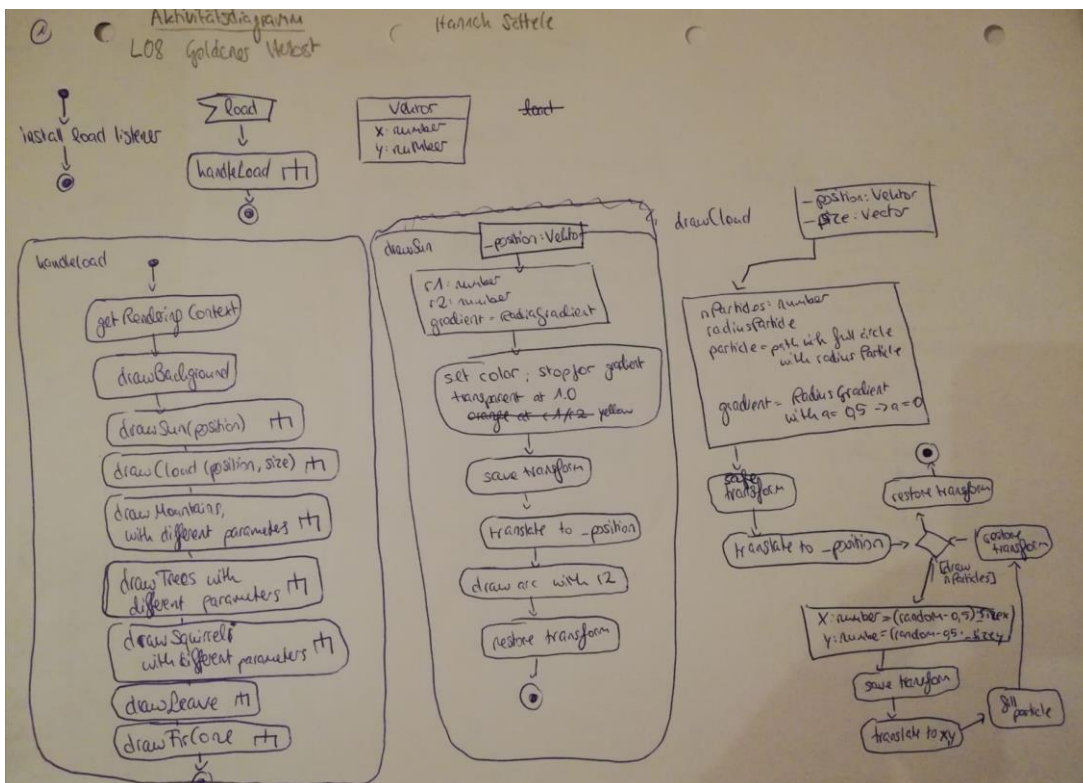 Aktivitätsdiagramm
L08 Goldenes Herbst
Hannah Settele
install load listener
load
handleLoad
Vektor
x: number
y: number
load
handleload
getRendering Context
drawBackground
drawSun(position)
drawCloud (position, size)
draw Mountains,
with different parameters
drawTrees with
different parameters
drawSquirrels
with different parameters
drawLeave
drawFirCone
drawSun
_position: Vektor
r1: number
r2: number
gradient = RadiaGradient
set color; stopfor gradient
transparent at 1.0
orange at r1/r2 yellow
save transform
translate to _position
draw arc with r2
restore transform
drawCloud
_position: Vektor
_size: Vector
nParticles: number
radiusParticle
particle = path with full circle
with radius Particle
gradient = Radius Gradient
with a = 0,5 -> a = 0
safe
transform
translate to _position
restore transform
restore
transform
[draw
nParticles]
X: number = (random-0,5)·_sizex
y: numbe = (random-0,5·_sizey
save transform
translate to xy
fill
particle